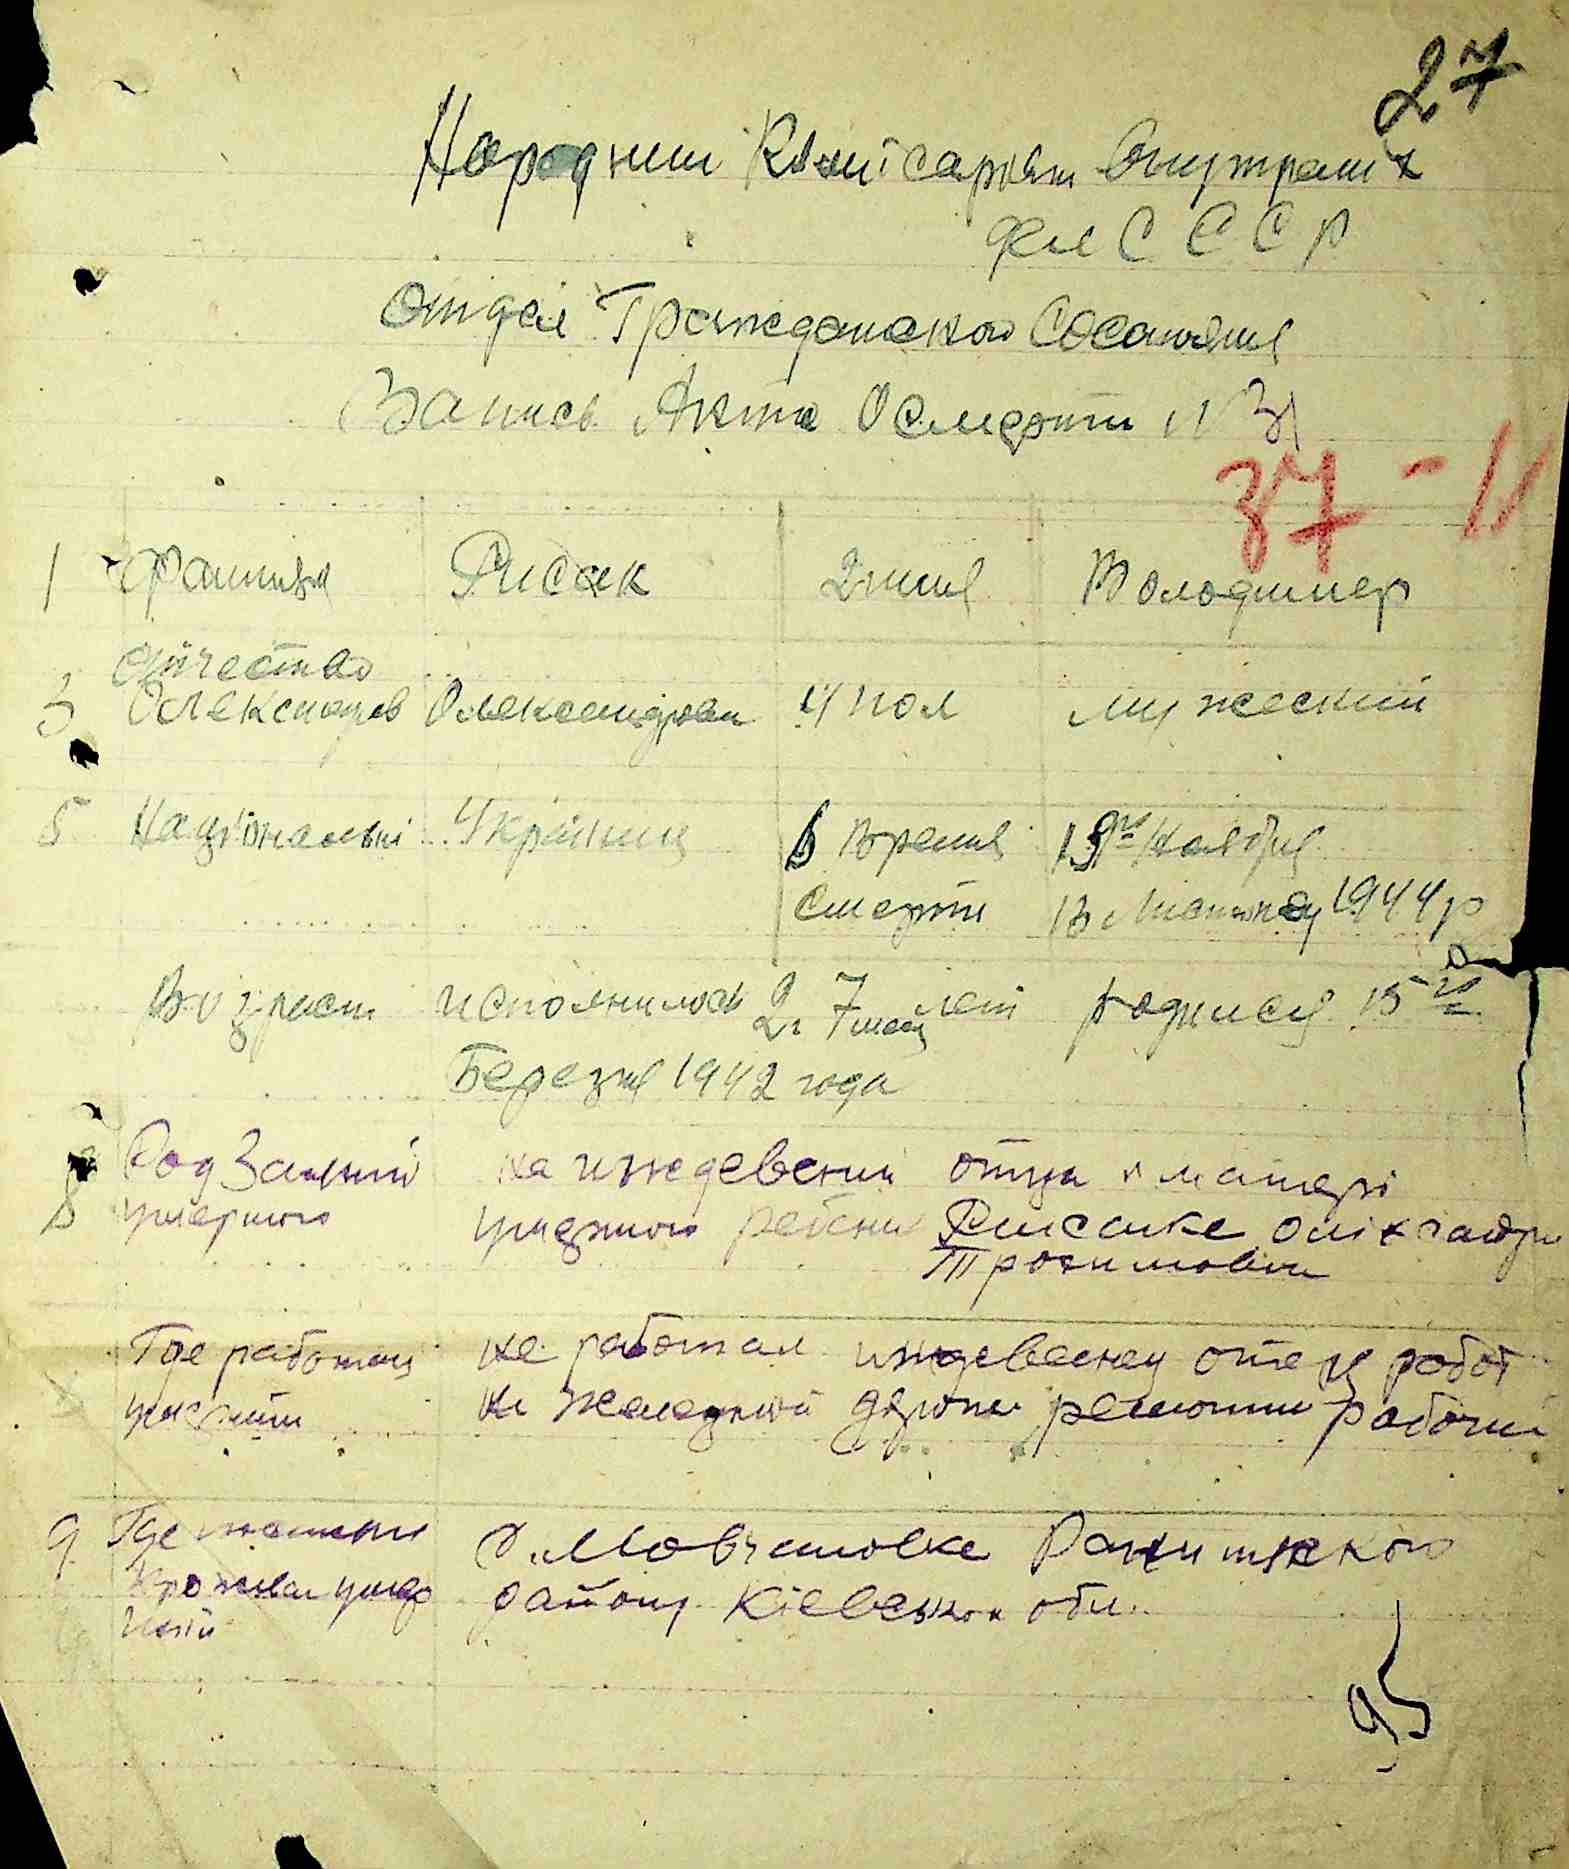 27
Народнии Комісаріат Внутрених
дел С С С Р
Отдел Гражданского Состояния
Запись Акта О смерти N 31
37 - 11
1 Фамилия Рисак 2 имя Володимер
Отчество
3 Олександров Олександрови 4 пол мужеский
5 Національні Українец 6 Время 19го Ноября
смерти в 1944 р
Возраст исполнилось 2г 7 мец лет родился 15го
Березня 1942 года
8 Род Занятий на иждевении отца и матері
умершого умершого Рисака Олександра
Трохимовича
Где работал не работал иждевенец отец робот
на железной дороги ремонтии рабочий
9 Где
Прожевал умер с. Мовчановке Ракитянского
ший району Кіевськои обл.
95